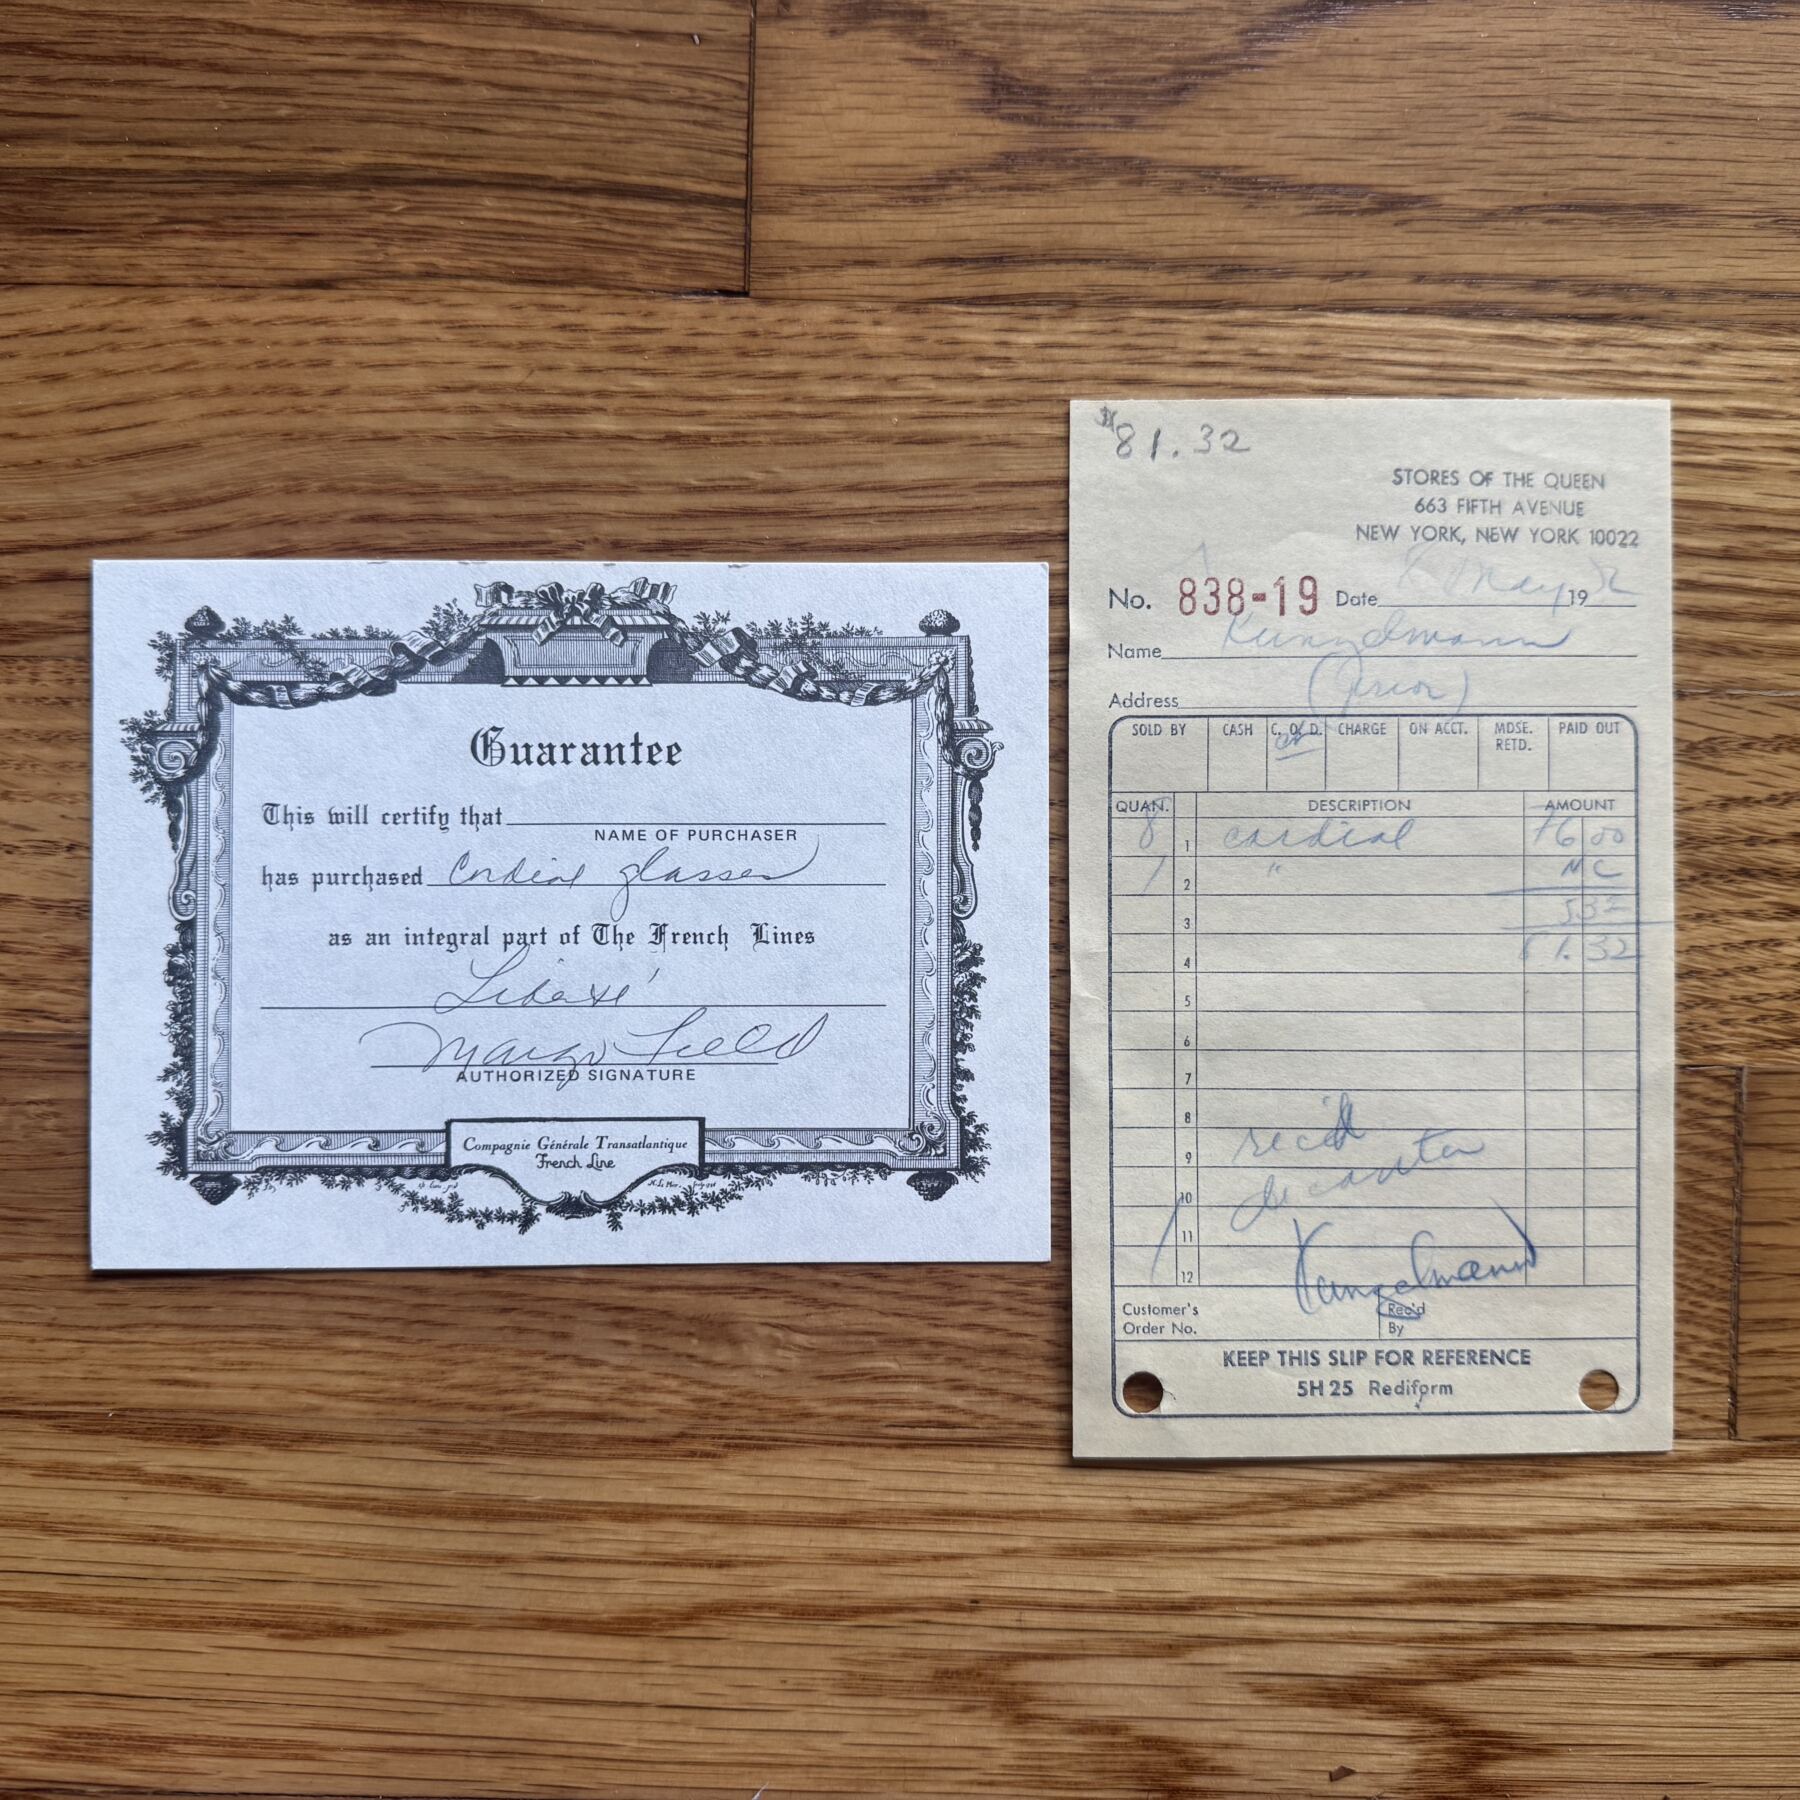 Guarantee
This will certify that
NAME OF PURCHASER
has purchased Cordial glasses
as an integral part of The French Lines
Liberté
Margo Field
AUTHORIZED SIGNATURE
Compagnie Générale Transatlantique
French Line
$81.32
STORES OF THE QUEEN
663 FIFTH AVENUE
NEW YORK, NEW YORK 10022
No. 838-19 Date 8 May 19
Name Kunzelmann
Address
SOLD BY CASH C. O. D. CHARGE ON ACCT. MDSE. RETD. PAID OUT
QUAN. DESCRIPTION AMOUNT
8 1 cordial 76 00
1 2 " NC
3 5 32
4 81.32
5
6
7
8
9 rec'd
10 decanter
11
12 Kunzelmann
Customer's Order No. Rec'd By
KEEP THIS SLIP FOR REFERENCE
5H 25 Rediform